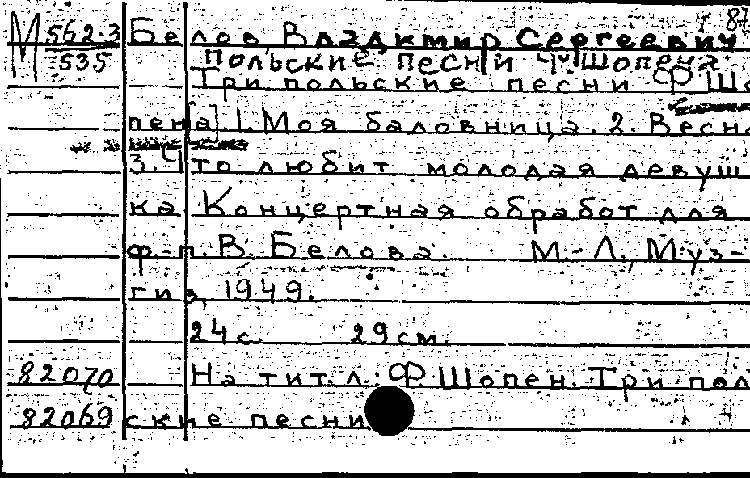 87
М 562-3 Белов Владимир Сергеевич
535 Польские песни Ф. Шопена
Три польские песни Ф Шо
пена] 1. Моя баловница. 2. Весн
3. Что любит молодая девуш
ка Концертная обработ для
ф.-п. В. Белова. М.-Л., Муз-
гиз, 1949.
24 с. 29 см.
82070 На тит. л.: Ф Шопен. Три пол
82069 ские песни